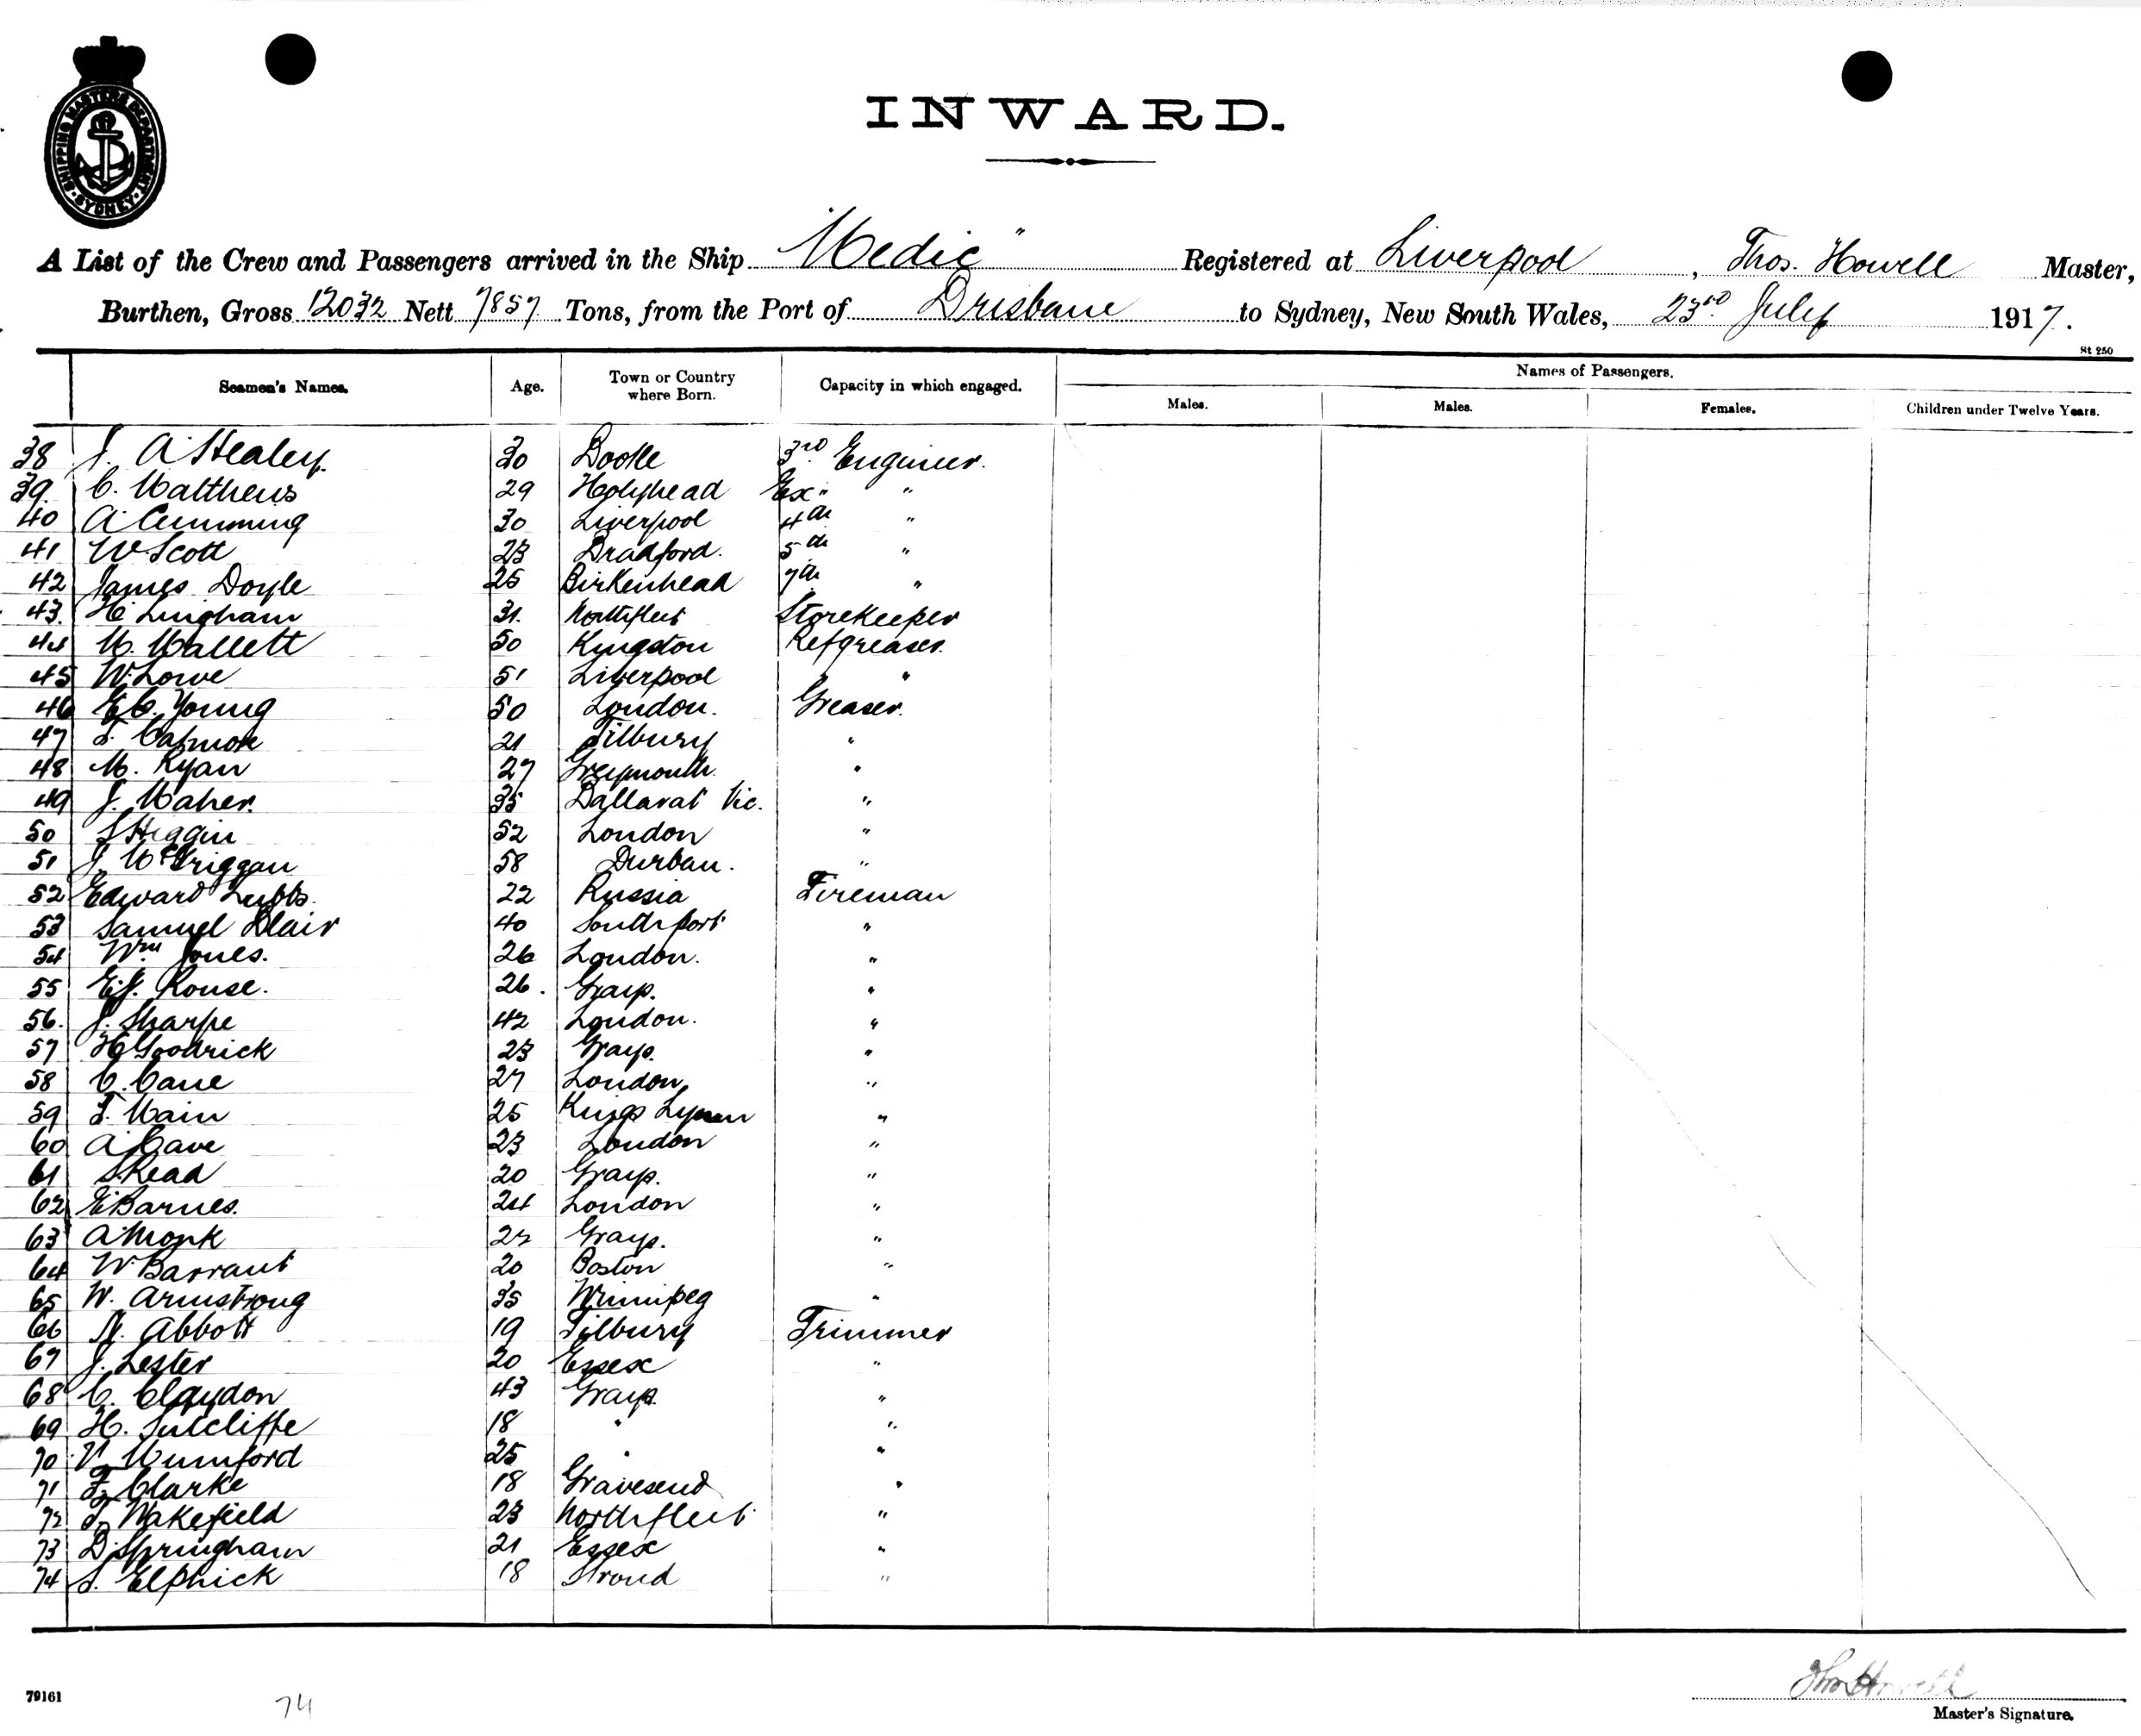 SHIPPING MASTERS DEPARTMENT
SYDNEY
INWARD.
A List of the Crew and Passengers arrived in the Ship "Medic" Registered at Liverpool, Thos. Howell Master,
Burthen, Gross 12032 Nett 7857 Tons, from the Port of Brisbane to Sydney, New South Wales, 23rd July 1917.
St 250
Seamen's Names. Age. Town or Country where Born. Capacity in which engaged. Names of Passengers.
Males. Males. Females. Children under Twelve Years.
38 J. A. Healey 30 Bootle 3rd Engineer.
39. C. Matthews 29 Holyhead Ex " "
40 A. Cumming 30 Liverpool 4th "
41 W Scott 23 Bradford. 5th "
42 James Doyle 25 Birkenhead 7th "
43. H. Lingham 31. Northfleet Storekeeper
44 M. Mallett 50 Kingston Refgreaser.
45 W. Lowe 51 Liverpool "
46 E C. Young 50 London. Greaser.
47 21 Tilbury "
48 M. Ryan 27 Greymouth. "
49 J. Maher. 35 Ballarat Vic. "
50 Higgin 52 London "
51 J. McGriggan 58 Durban. "
52 Edward Lubbs. 22 Russia Fireman
53 Samuel Blair 40 Southport "
54 Wm Jones. 26 London. "
55 E. J. Rouse. 26. Grays. "
56. J. Sharpe 42 London. "
57 H Goodrick 23 Grays. "
58 C. Cane 27 London "
59 T. Main 25 Kings Lynn "
60 A. Cave 23 London "
61 S. Read 20 Grays. "
62 E Barnes. 24 London "
63 A. Monk 22 Grays. "
64 W Barrant 20 Boston "
65 W. Armstrong 35 Winnipeg "
66 N. Abbott 19 Tilbury Trimmer
67 J. Lester 20 Essex "
68 C. Claydon 43 Grays. "
69 H. Sutcliffe 18 " "
70 V. Mumford 25 " "
71 F. Clarke 18 Gravesend "
72 T. Wakefield 23 Northfleet. "
73 D. Springham 21 Essex "
74 S. Elphick 18 Stroud "
79161
74
Thos Howell
Master's Signature.